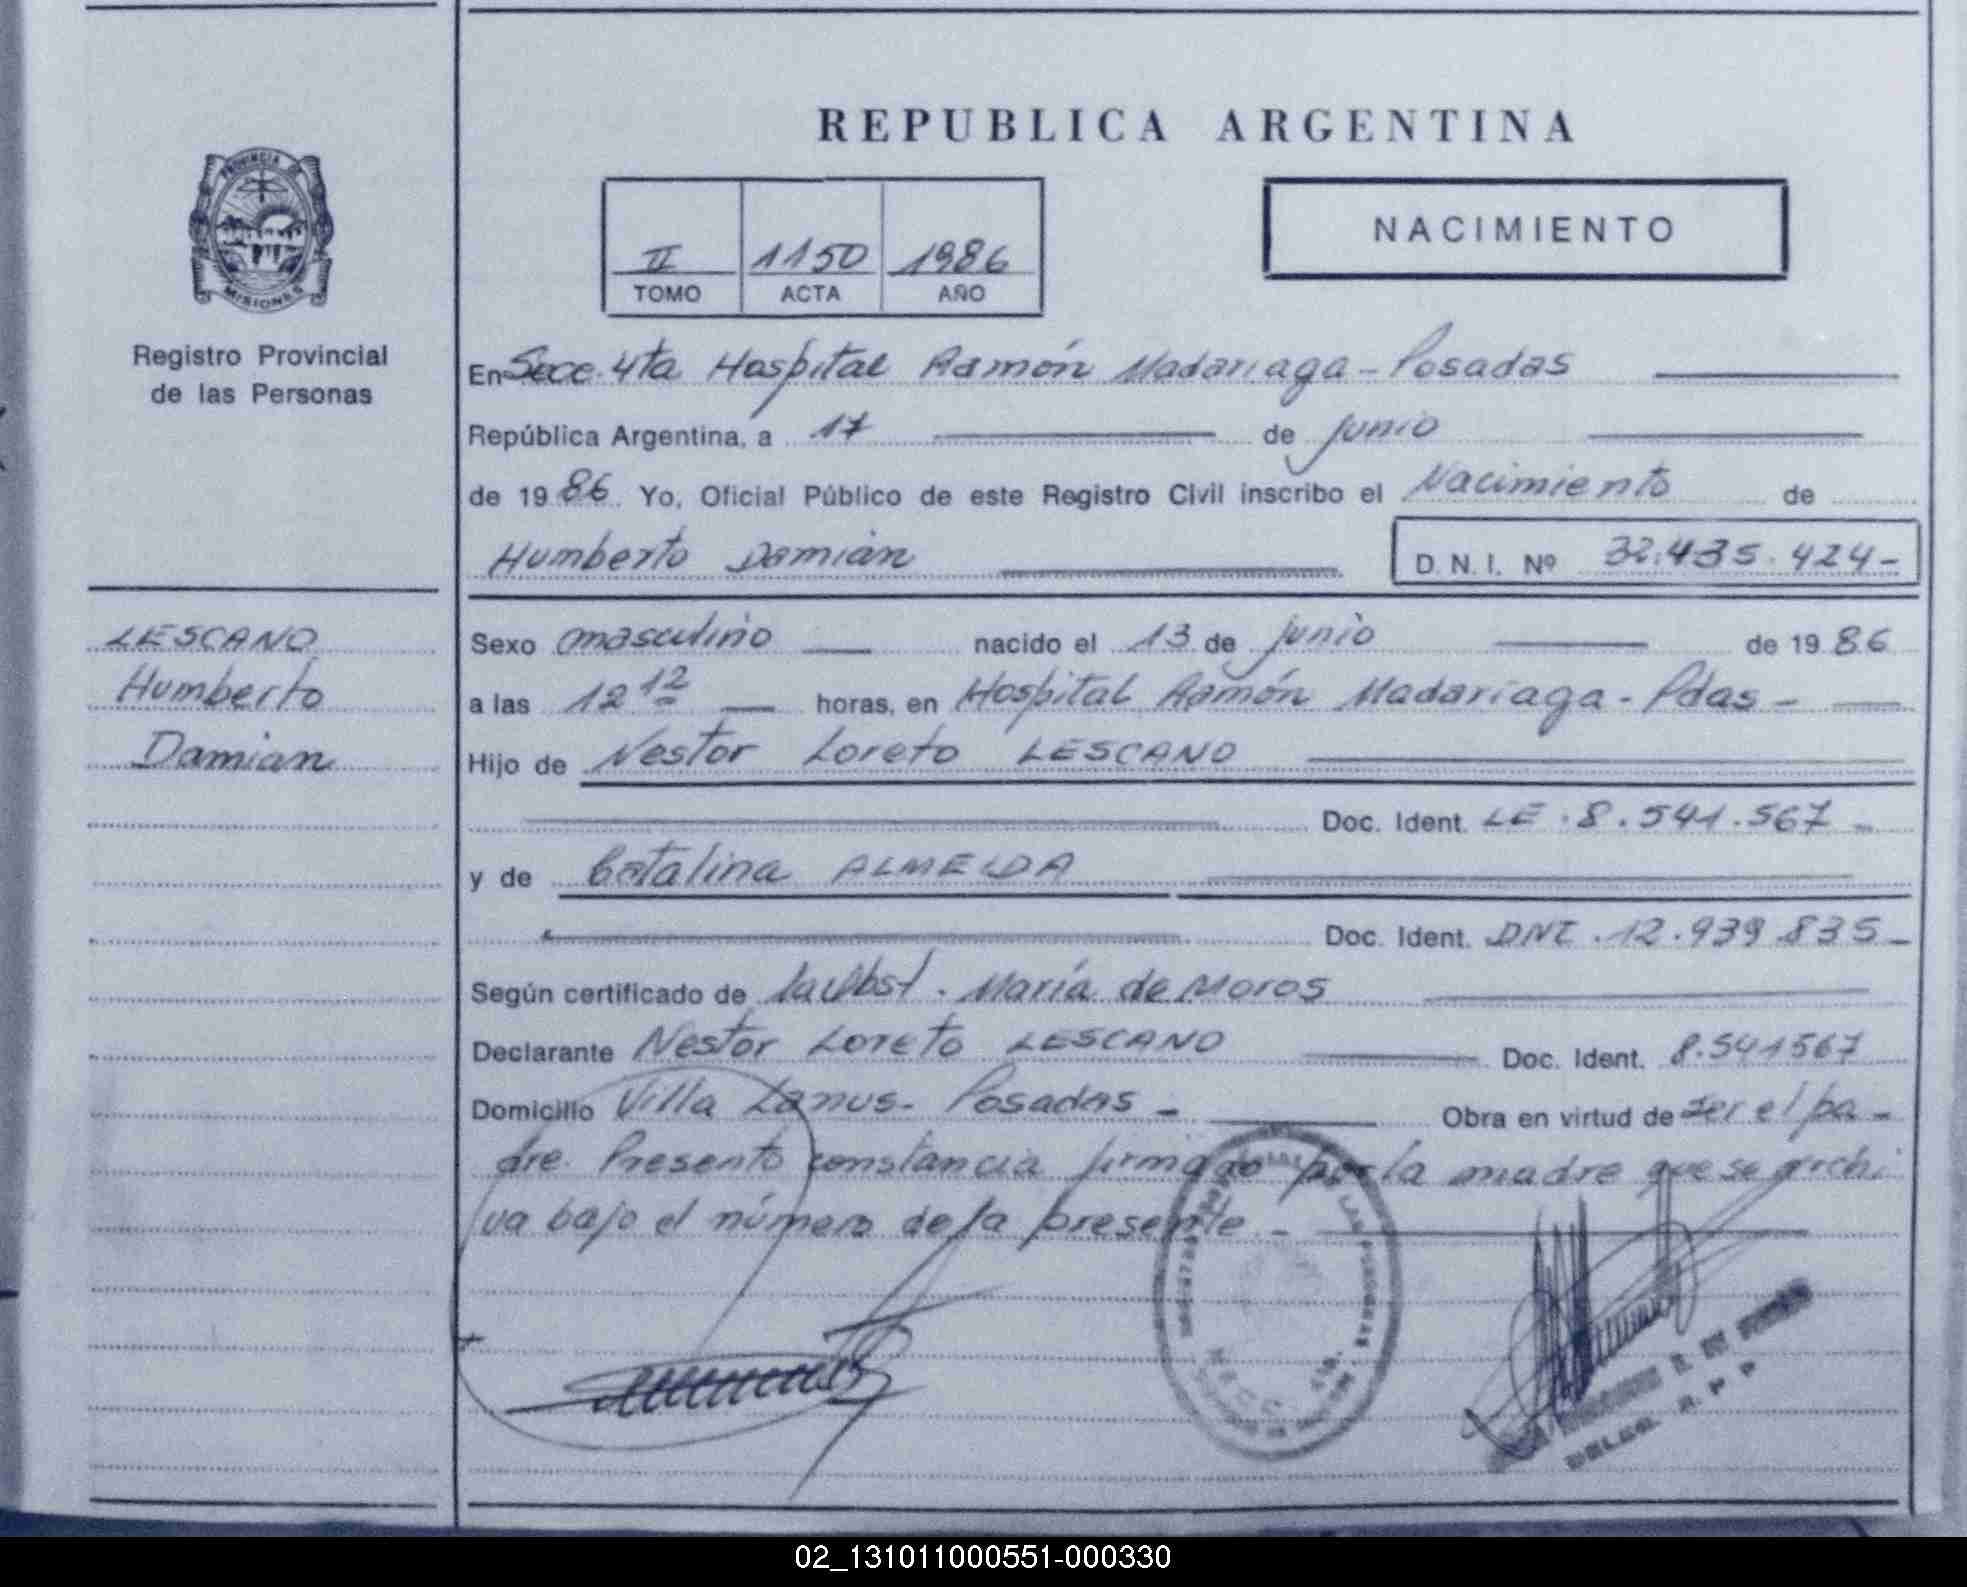 REPUBLICA ARGENTINA
PROVINCIA DE
MISIONES
Registro Provincial
de las Personas
II 1150 1986
TOMO ACTA AÑO
NACIMIENTO
En Secc. 4ta Hospital Ramón Madariaga - Posadas
República Argentina, a 17 de junio
de 1986. Yo, Oficial Público de este Registro Civil inscribo el Nacimiento de
Humberto Damián D. N. I. Nº 32.435.424-
LESCANO
Humberto
Damian
Sexo masculino nacido el 13 de junio de 1986
a las 12 12 horas, en Hospital Ramón Madariaga - Pdas -
Hijo de Nestor Loreto LESCANO
Doc. Ident. LE. 8.541.567 -
y de Catalina ALMEIDA
Doc. Ident. DNI. 12.939.835 -
Según certificado de la Obst. María de Moros
Declarante Nestor Loreto LESCANO Doc. Ident. 8.541567
Domicilio Villa Lanus - Posadas - Obra en virtud de ser el pa-
dre. Presento constancia firmada por la madre que se archi
va bajo el número de la presente -
DELEG. R. P. P.
02_131011000551-000330